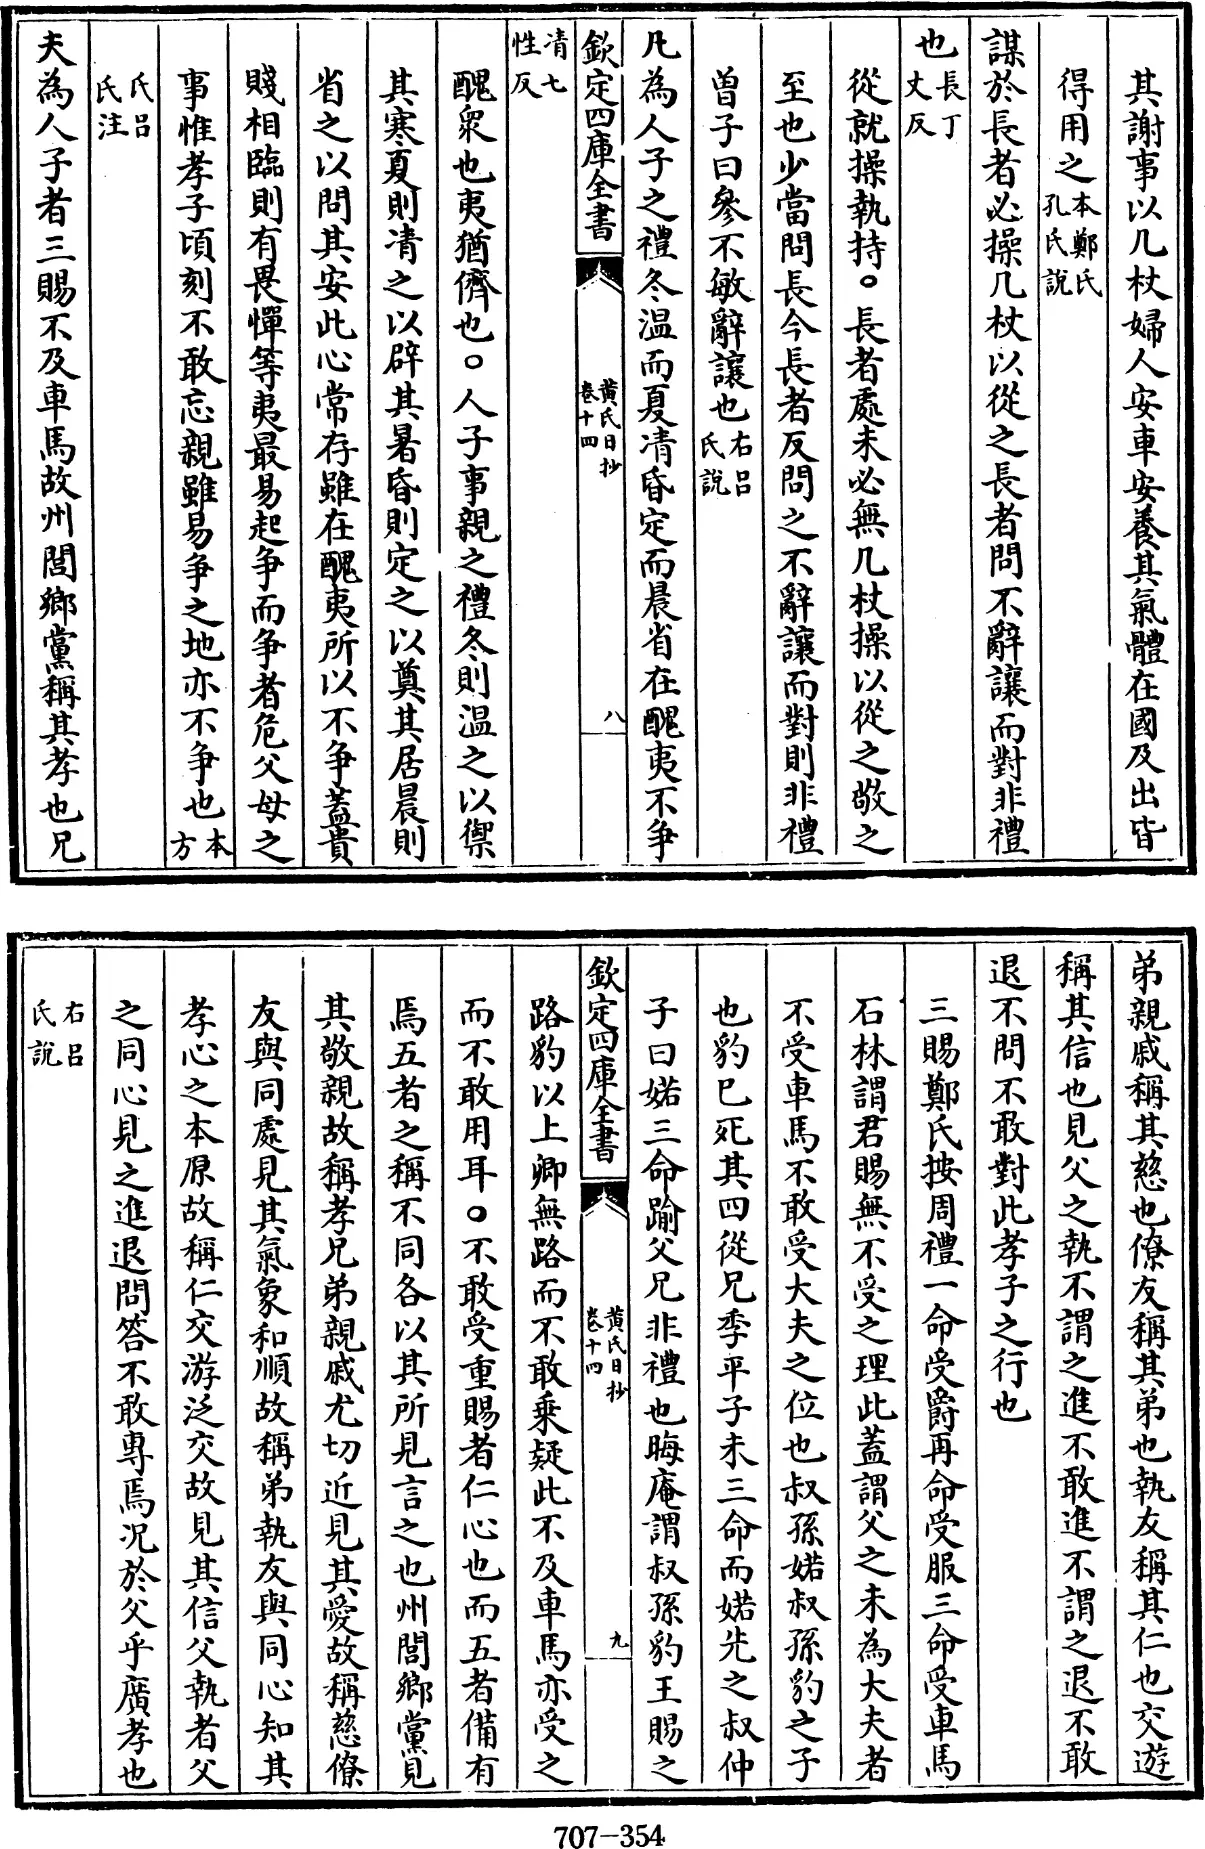 其謝事以几杖婦人安車安養其氣體在國及出皆
得用之本鄭氏孔氏說
謀於長者必操几杖以從之長者問不辭讓而對非禮
也長丁丈反
從就操執持○長者處未必無几杖操以從之敬之
至也少當問長今長者反問之不辭讓而對則非禮
曾子曰參不敏辭讓也右呂氏說
凡為人子之禮冬溫而夏凊昏定而晨省在醜夷不爭
欽定四庫全書
黃氏日抄
卷十四
八
凊七性反
醜衆也夷猶儕也○人子事親之禮冬則溫之以禦
其寒夏則凊之以辟其暑昏則定之以奠其居晨則
省之以問其安此心常存雖在醜夷所以不爭蓋貴
賤相臨則有畏憚等夷最易起爭而爭者危父母之
事惟孝子頃刻不敢忘親雖易爭之地亦不爭也本方
氏呂氏注
夫為人子者三賜不及車馬故州閭鄉黨稱其孝也兄
弟親戚稱其慈也僚友稱其弟也執友稱其仁也交遊
稱其信也見父之執不謂之進不敢進不謂之退不敢
退不問不敢對此孝子之行也
三賜鄭氏按周禮一命受爵再命受服三命受車馬
石林謂君賜無不受之理此蓋謂父之未為大夫者
不受車馬不敢受大夫之位也叔孫婼叔孫豹之子
也豹已死其四從兄季平子未三命而婼先之叔仲
子曰婼三命踰父兄非禮也晦庵謂叔孫豹王賜之
欽定四庫全書
黃氏日抄
卷十四
九
路豹以上卿無路而不敢乗疑此不及車馬亦受之
而不敢用耳○不敢受重賜者仁心也而五者備有
焉五者之稱不同各以其所見言之也州閭鄉黨見
其敬親故稱孝兄弟親戚尤切近見其愛故稱慈僚
友與同處見其氣象和順故稱弟執友與同心知其
孝心之本原故稱仁交游泛交故見其信父執者父
之同心見之進退問答不敢專焉况於父乎廣孝也
右呂氏說
707-354